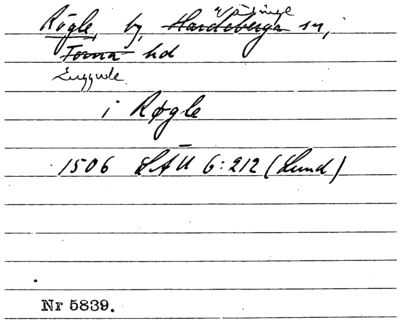 Välinge
Rögle, by, Hardeberga sn,
Torna hd
Luggude
i Røgle
1506 LÄU 6:212 (Lund)
Nr 5839.